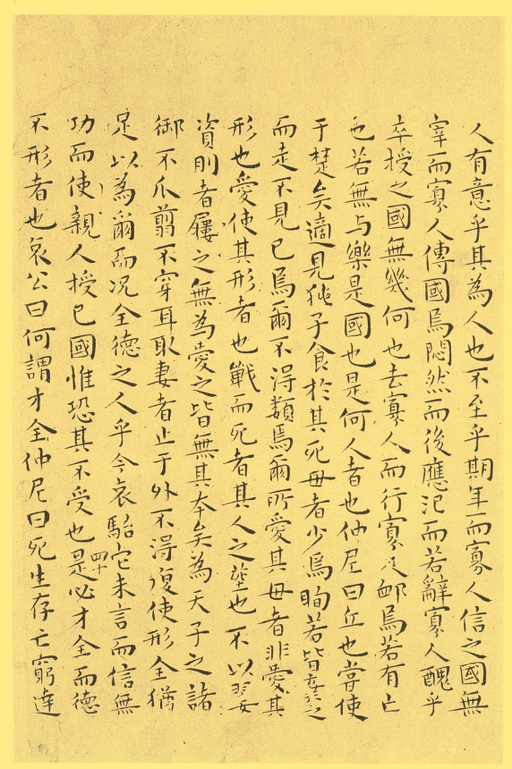 人有意乎其為人也不至乎期年而寡人信之國無
宰而寡人傳國焉悶然而後應氾而若辭寡人醜乎
卒授之國無幾何也去寡人而行寡人卹焉若有亡
也若無与樂是國也是何人者也仲尼曰丘也嘗使
于楚矣適見㹠子食於其死母者少焉眴若皆棄之
而走不見己焉爾不淂類焉爾所愛其母者非愛其
形也愛使其形者也戰而死者其人之塟也不以翣
資刖者屨之無為愛之皆無其本矣為天子之諸
御不爪翦不穿耳取妻者止于外不淂復使形全猶
足以為爾而況全德之人乎今哀駘它未言而信無
功而使親人授己國惟恐其不受也是必才全而德
四十
不形者也哀公曰何謂才全仲尼曰死生存亡窮達